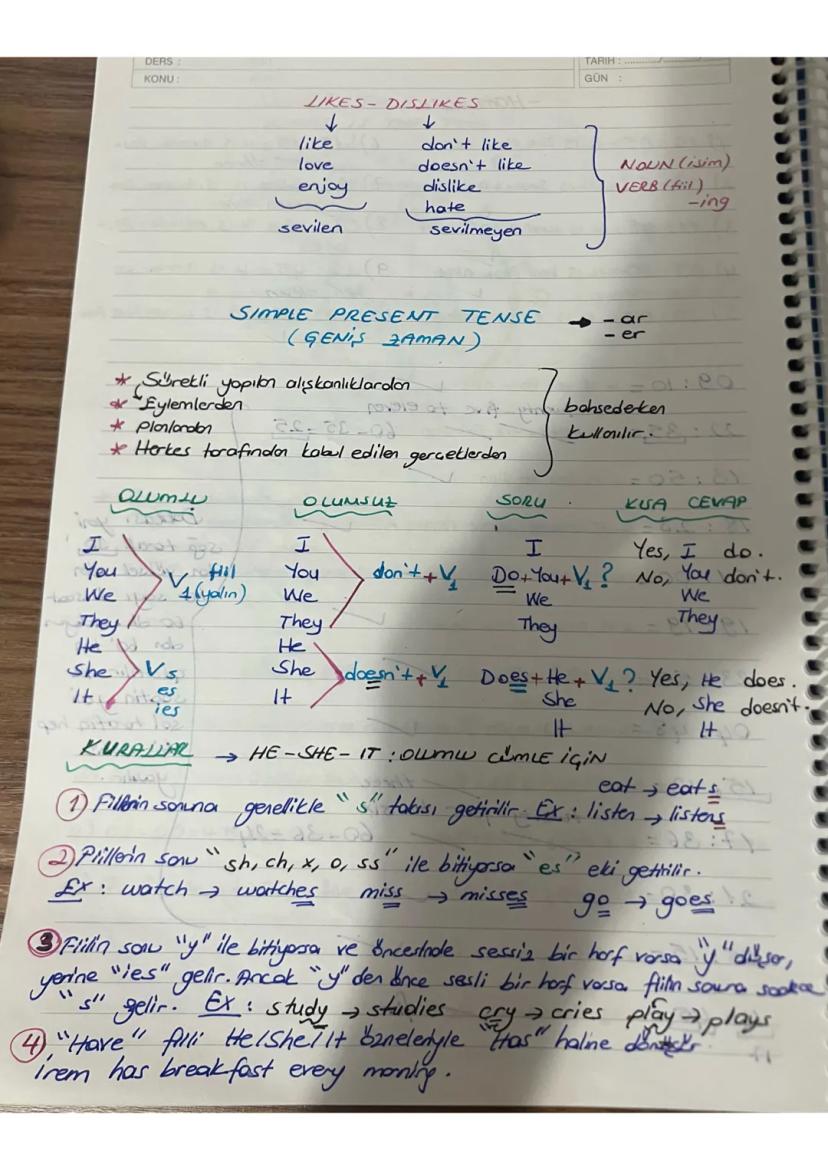 DERS :
TARİH : ......../......../........
KONU :
GÜN :
LIKES - DISLIKES
↓ ↓
like don't like
love doesn't like
enjoy dislike
hate
sevilen sevilmeyen
NOUN (isim)
VERB (fiil)
-ing
SIMPLE PRESENT TENSE → - ar
(GENİŞ ZAMAN) - er
* Sürekli yapılan alışkanlıklardan
* Eylemlerden
* Planlardan
* Herkes tarafından kabul edilen gerçeklerden
bahsederken
kullanılır.
OLUMLU OLUMSUZ SORU KISA CEVAP
I I I Yes, I do.
You V1 fiil (yalın) You don't + V1 Do + You + V1 ? No, You don't.
We We We We
They They They They
He He
She V s, She doesn't + V1 Does + He + V1 ? Yes, He does.
It es It She No, She doesn't.
ies It It
KURALLAR → HE - SHE - IT : OLUMLU CÜMLE İÇİN
eat → eats
1 Fiillerin sonuna genellikle "s" takısı getirilir. Ex : listen → listens
2 Fiillerin sonu "sh, ch, x, o, ss" ile bitiyorsa "es" eki getirilir.
Ex : watch → watches miss → misses go → goes
3 Fiilin sonu "y" ile bitiyorsa ve öncesinde sessiz bir harf varsa "y" düşer,
yerine "ies" gelir. Ancak "y" den önce sesli bir harf varsa fiilin sonuna sadece
"s" gelir. Ex : study → studies cry → cries play → plays
4 "Have" fiili He/She/It özneleriyle "Has" haline
İrem has breakfast every morning.